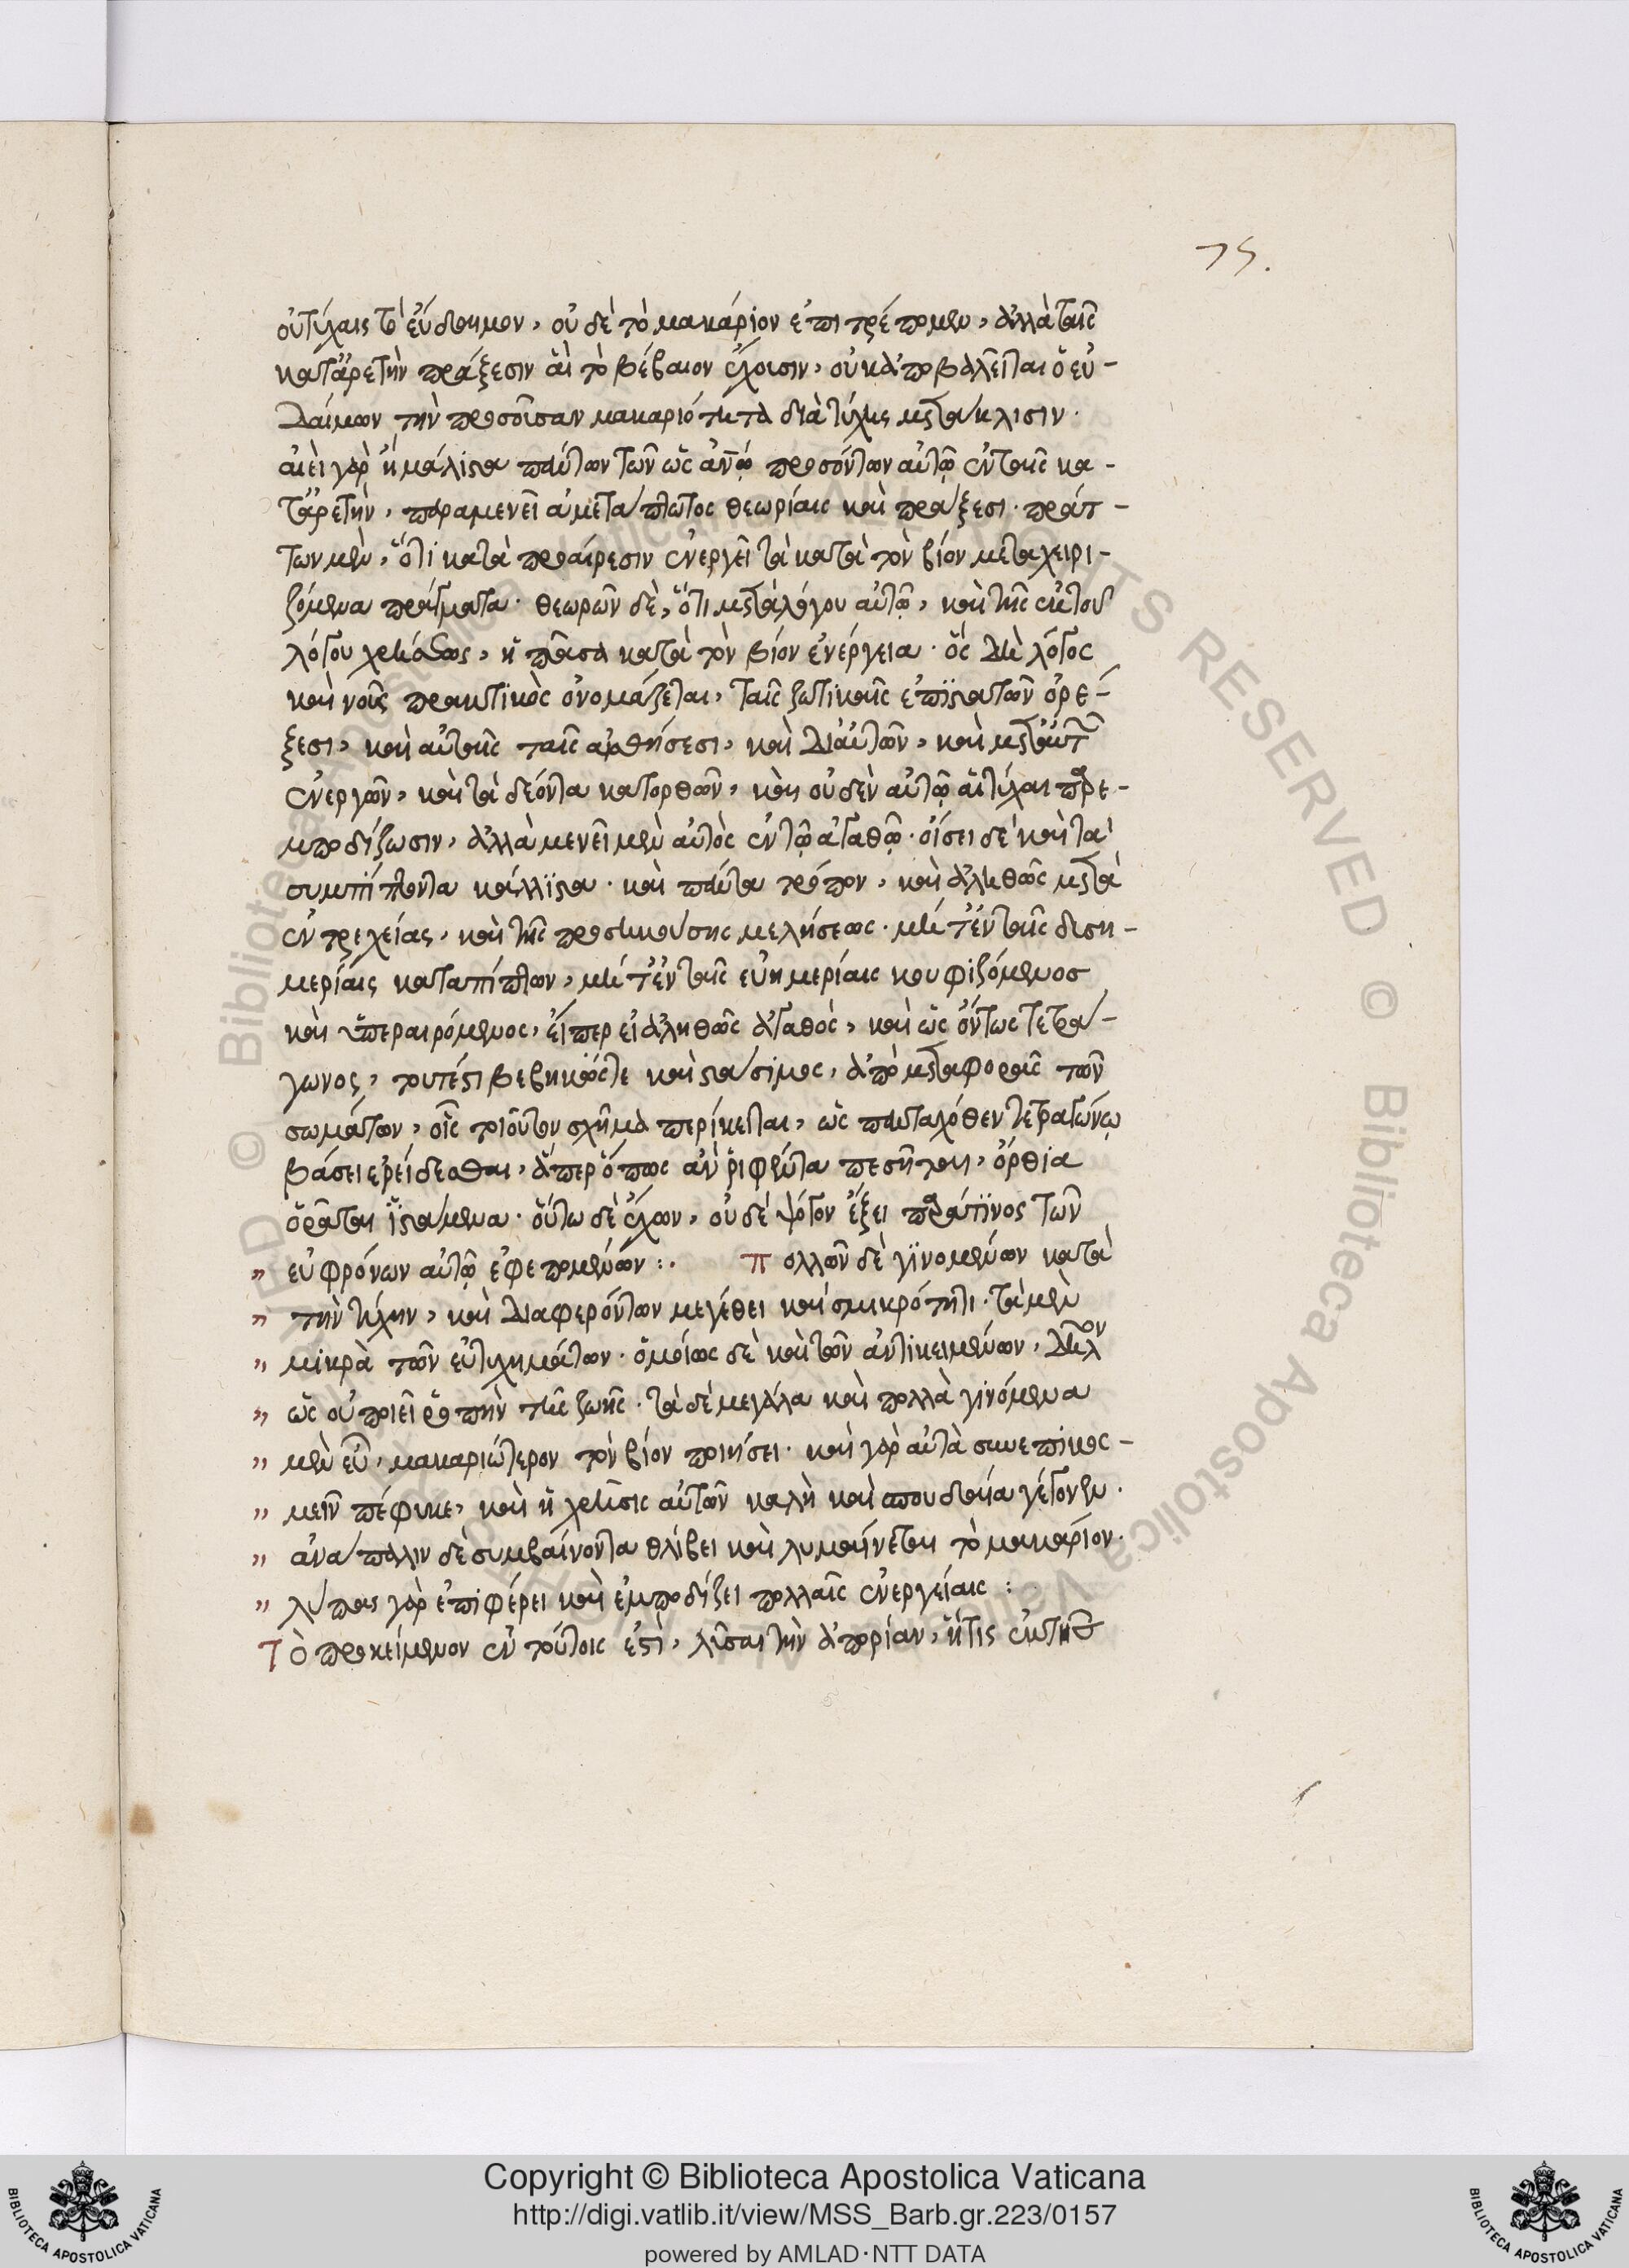 75.
οὐ τύχαις τὸ εὔδαιμον, οὐδὲ τὸ μακάριον ἐπιτρέπομεν, ἀλλὰ ταῖς
κατ' ἀρετὴν πράξεσιν αἳ τὸ βέβαιον ἔχουσιν, οὐκ ἀποβαλεῖται ὁ εὐ-
δαίμων τὴν προσοῦσαν μακαριότητα διὰ τύχης μετάκλισιν.
αἰεὶ γὰρ ἢ μάλιστα πάντων τῶν ὡς ἀνῳ προσόντων αὐτῷ ἐν ταῖς κα-
τ' ἀρετὴν, παραμενεῖ ἀμετάπτωτος θεωρίαις καὶ πράξεσι. πράτ-
των μὲν, ὅτι κατὰ προαίρεσιν ἐνεργεῖ τὰ κατὰ τὸν βίον μεταχειρι-
ζόμενα πράγματα. θεωρῶν δὲ, ὅτι μετὰ λόγου αὐτῷ, καὶ τῆς ἐκ τοῦ
λόγου χειᾶς, ἡ πᾶσα κατὰ τὸν βίον ἐνέργεια. ὃς δὴ λόγος
καὶ νοῦς πρακτικὸς ὀνομάζεται, ταῖς ζωτικαῖς ἐπιστατῶν ὀρέ-
ξεσι, καὶ αὐταῖς ταῖς αἰσθήσεσι, καὶ δι' αὐτῶν, καὶ μετ' αὐτῶν
ἐνεργῶν, καὶ τὰ δέοντα κατορθῶν, κἂν οὐδὲν αὐτῷ αἱ τύχαι παρε-
μποδίζωσιν, ἀλλὰ μενεῖ μὲν αὐτὸς ἐν τῷ ἀγαθῷ. οἴσει δὲ καὶ τὰ
συμπίπτοντα κάλλιστα. καὶ πάντα τρόπον, καὶ ἀληθῶς μετὰ
ἐντρεχείας, καὶ τῆς προσηκούσης μελήσεως. μήτ' ἐν ταῖς δυση-
μερίαις καταπίπτων, μήτ' ἐν ταῖς εὐημερίαις κουφιζόμενος
καὶ ὑπεραιρόμενος, εἴπερ εἰ ἀληθῶς ἀγαθὸς, καὶ ὡς ὄντως τετρά-
γωνος, τουτέστι βεβηκώς τε καὶ στάσιμος, ἀπὸ μεταφορᾶς τῶν
σωμάτων, οἷς τοιοῦτον σχῆμα περίκειται, ὡς πανταχόθεν τετραγώνῳ
βάσει ἐρείδεσθαι, ἅπερ ὅπως ἂν ῥιφέντα πέσῃ τοι, ὄρθια
ὁρᾶται ἱστάμενα. οὕτω δὲ ἔχων, οὐδὲ ψόγον ἕξει παρά τινος τῶν
" εὐφρόνων αὐτῷ ἐφεπομένων :. Πολλῶν δὲ γινομένων κατὰ
" τὴν τύχην, καὶ διαφερόντων μεγέθει καὶ σμικρότητι. τὰ μὲν
" μικρὰ τῶν εὐτυχημάτων. ὁμοίως δὲ καὶ τῶν ἀντικειμένων, δῆλον
" ὡς οὐ ποιεῖ ῥοπὴν τῆς ζωῆς. τὰ δὲ μεγάλα καὶ πολλὰ γινόμενα
" μὲν εὖ, μακαριώτερον τὸν βίον ποιήσει. καὶ γὰρ αὐτὰ συνεπικος-
" μεῖν πέφυκε, καὶ ἡ χρῆσις αὐτῶν καλὴ καὶ σπουδαία γέγονεν.
" ἀνάπαλιν δὲ συμβαίνοντα θλίβει καὶ λυμαίνεται τὸ μακάριον.
" λύπας γὰρ ἐπιφέρει καὶ ἐμποδίζει πολλαῖς ἐνεργείαις :
Τὸ προκείμενον ἐν τούτοις ἐστὶ, λῦσαι τὴν ἀπορίαν, ἥτις ἐκ τῆς
Copyright © Biblioteca Apostolica Vaticana
http://digi.vatlib.it/view/MSS_Barb.gr.223/0157
powered by AMLAD·NTT DATA